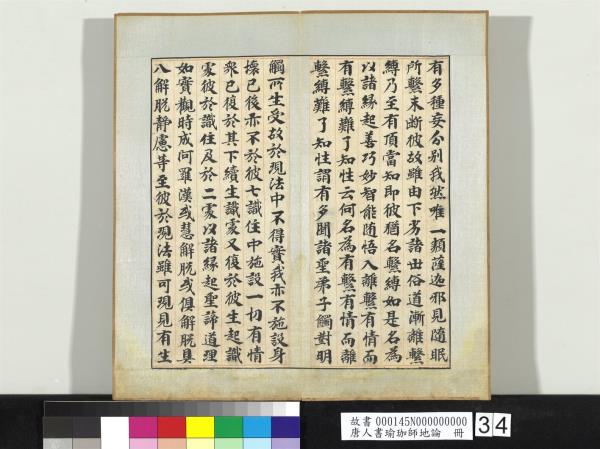 有多種妄分別我然唯一類薩迦邪見隨眠
所繫未斷彼故雖由下劣諸世俗道漸離繫
縛乃至有頂當知即彼猶名繫縛如是名為
以諸緣起善巧妙智能隨悟入離繫有情而
有繫縛難了知性云何名為有繫有情而離
繫縛難了知性謂有多聞諸聖弟子觸對明
觸所生受故於現法中不得實我亦不施設身
壞已後亦不於彼七識住中施設一切有情
眾已復於其下續生識處又復於彼生起識
處彼於識住及於二處以諸緣起聖諦道理
如實觀時成阿羅漢或慧解脫或俱解脫具
八解脫靜慮等至彼於現法雖可現見有生
故書 000145N000000000
唐人書瑜珈師地論 冊
34